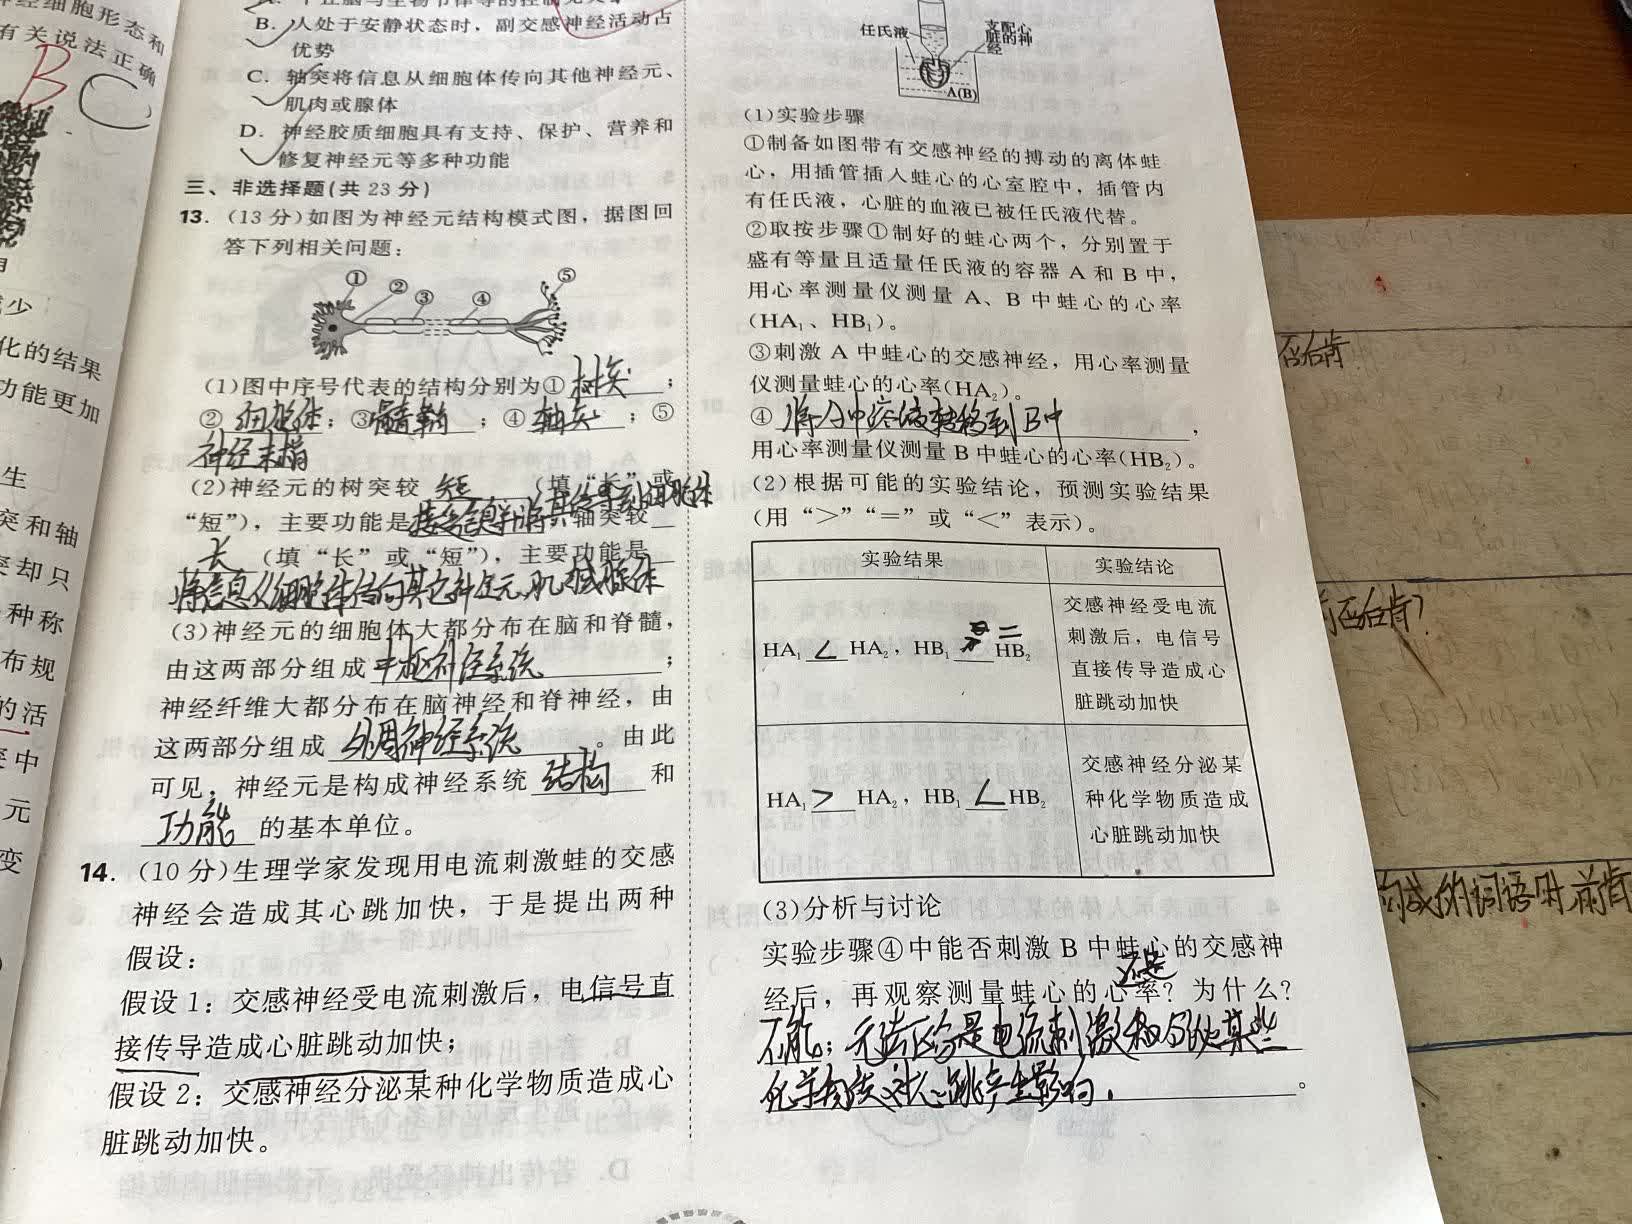 经细胞形态和
有关说法正确
B C
少
化的结果
功能更加
生
突和轴
突却只
种称
布规
的活
突中
元
变
B. 人处于安静状态时，副交感神经活动占
优势
C. 轴突将信息从细胞体传向其他神经元、
肌肉或腺体
D. 神经胶质细胞具有支持、保护、营养和
修复神经元等多种功能
三、非选择题(共 23 分)
13. (13 分)如图为神经元结构模式图，据图回
答下列相关问题：
① ② ③ ④ ⑤
(1)图中序号代表的结构分别为①树突；
②细胞体；③髓鞘；④轴突；⑤
神经末梢
(2)神经元的树突较 短 (填“长”或
“短”)，主要功能是接受信息并将其传导到细胞体 轴突较
长 (填“长”或“短”)，主要功能是
将信息从细胞体传向其它神经元、肌肉或腺体
(3)神经元的细胞体大都分布在脑和脊髓，
由这两部分组成中枢神经系统；
神经纤维大都分布在脑神经和脊神经，由
这两部分组成 外周神经系统。由此
可见，神经元是构成神经系统 结构 和
功能 的基本单位。
14. (10 分)生理学家发现用电流刺激蛙的交感
神经会造成其心跳加快，于是提出两种
假设：
假设 1：交感神经受电流刺激后，电信号直
接传导造成心脏跳动加快；
假设 2：交感神经分泌某种化学物质造成心
脏跳动加快。
任氏液
支配心
脏的神
经
A(B)
(1)实验步骤
①制备如图带有交感神经的搏动的离体蛙
心，用插管插入蛙心的心室腔中，插管内
有任氏液，心脏的血液已被任氏液代替。
②取按步骤①制好的蛙心两个，分别置于
盛有等量且适量任氏液的容器 A 和 B 中，
用心率测量仪测量 A、B 中蛙心的心率
(HA₁、HB₁)。
③刺激 A 中蛙心的交感神经，用心率测量
仪测量蛙心的心率(HA₂)。
④ 将A中溶液转移到B中，
用心率测量仪测量 B 中蛙心的心率(HB₂)。
(2)根据可能的实验结论，预测实验结果
(用“>”“=”或“<”表示)。
实验结果 实验结论
HA₁ < HA₂，HB₁ = HB₂
交感神经受电流
刺激后，电信号
直接传导造成心
脏跳动加快
HA₁ > HA₂，HB₁ < HB₂
交感神经分泌某
种化学物质造成
心脏跳动加快
(3)分析与讨论
实验步骤④中能否刺激 B 中蛙心的交感神
经后，再观察测量蛙心的心率？为什么？
还是
不能；无法区分是电流刺激和分泌某些
化学物质对心跳产生影响。
否右肯
构成的词语时，前肯